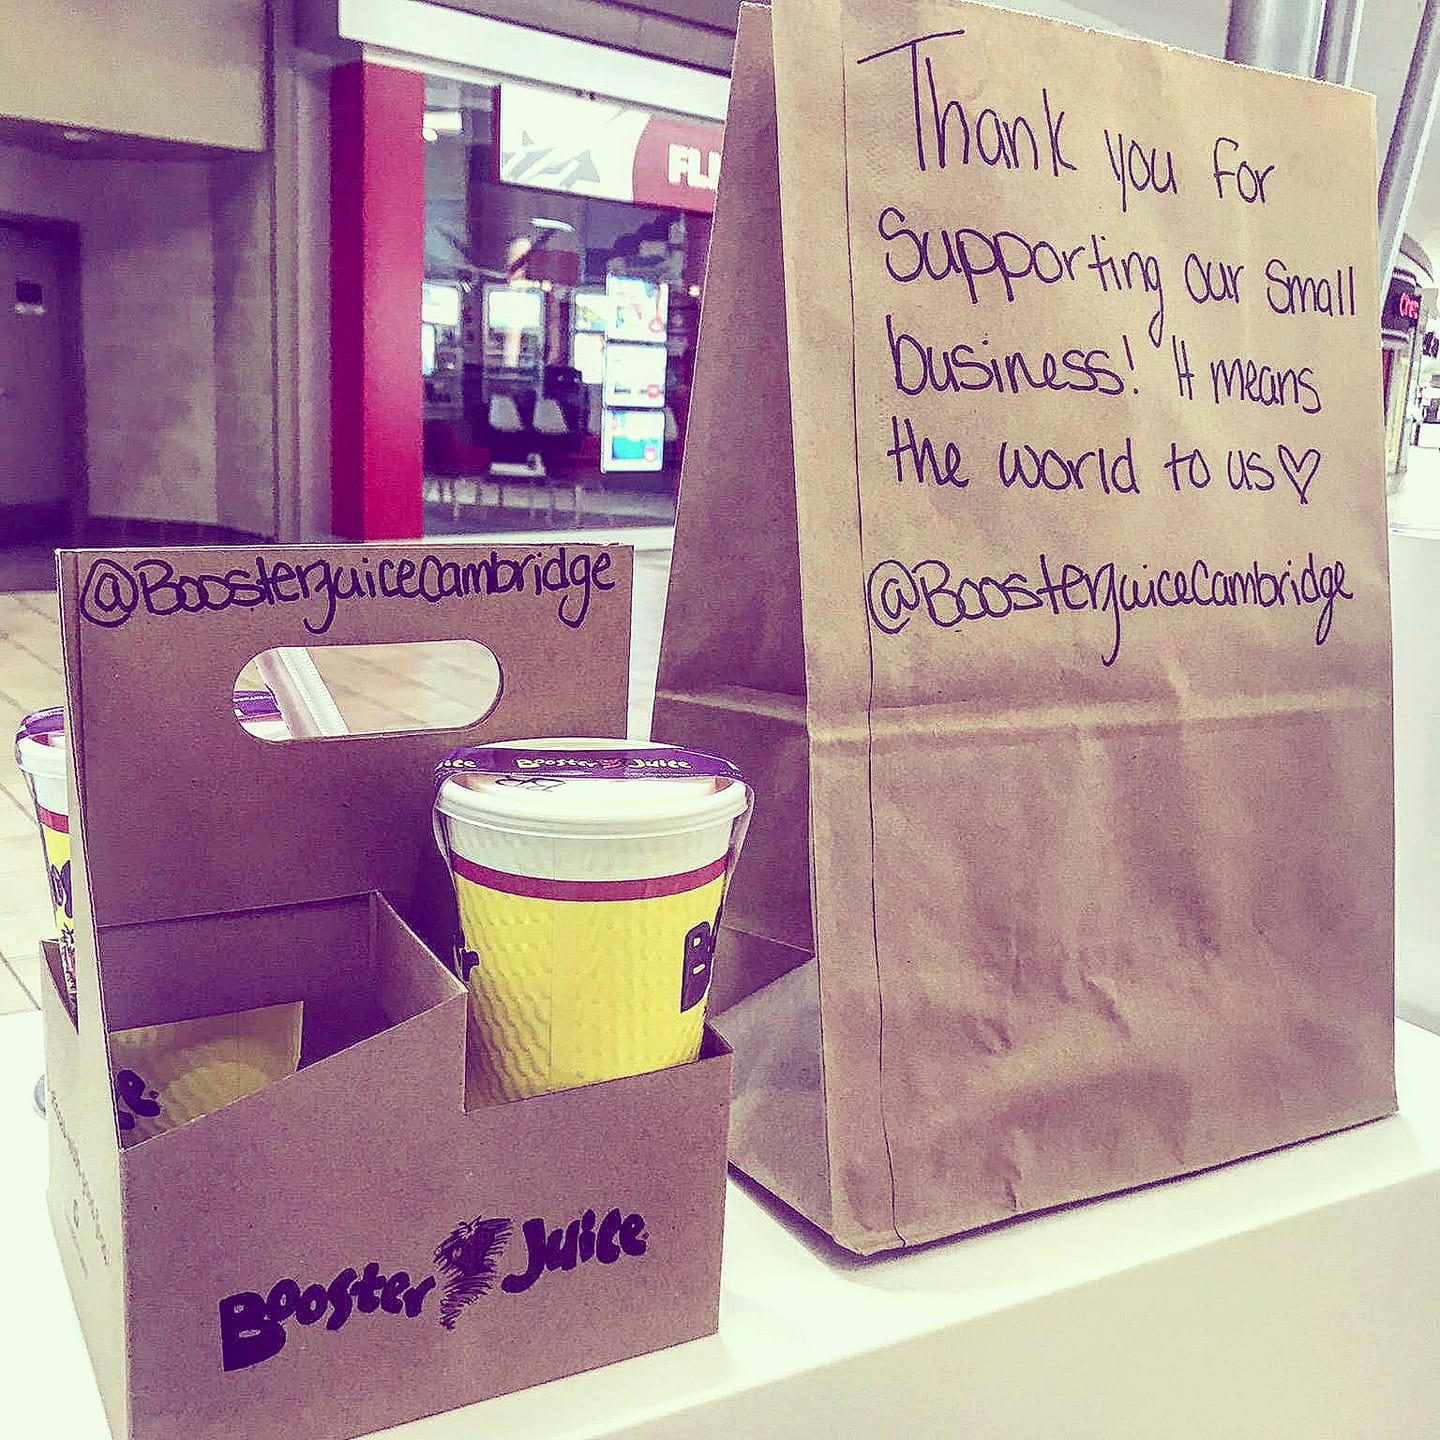 Thank you for
Supporting our small
business! It means
the world to us♡
@BoosterjuiceCambridge
@BoosterjuiceCambridge
Booster Juice
Booster Juice
FLI
B